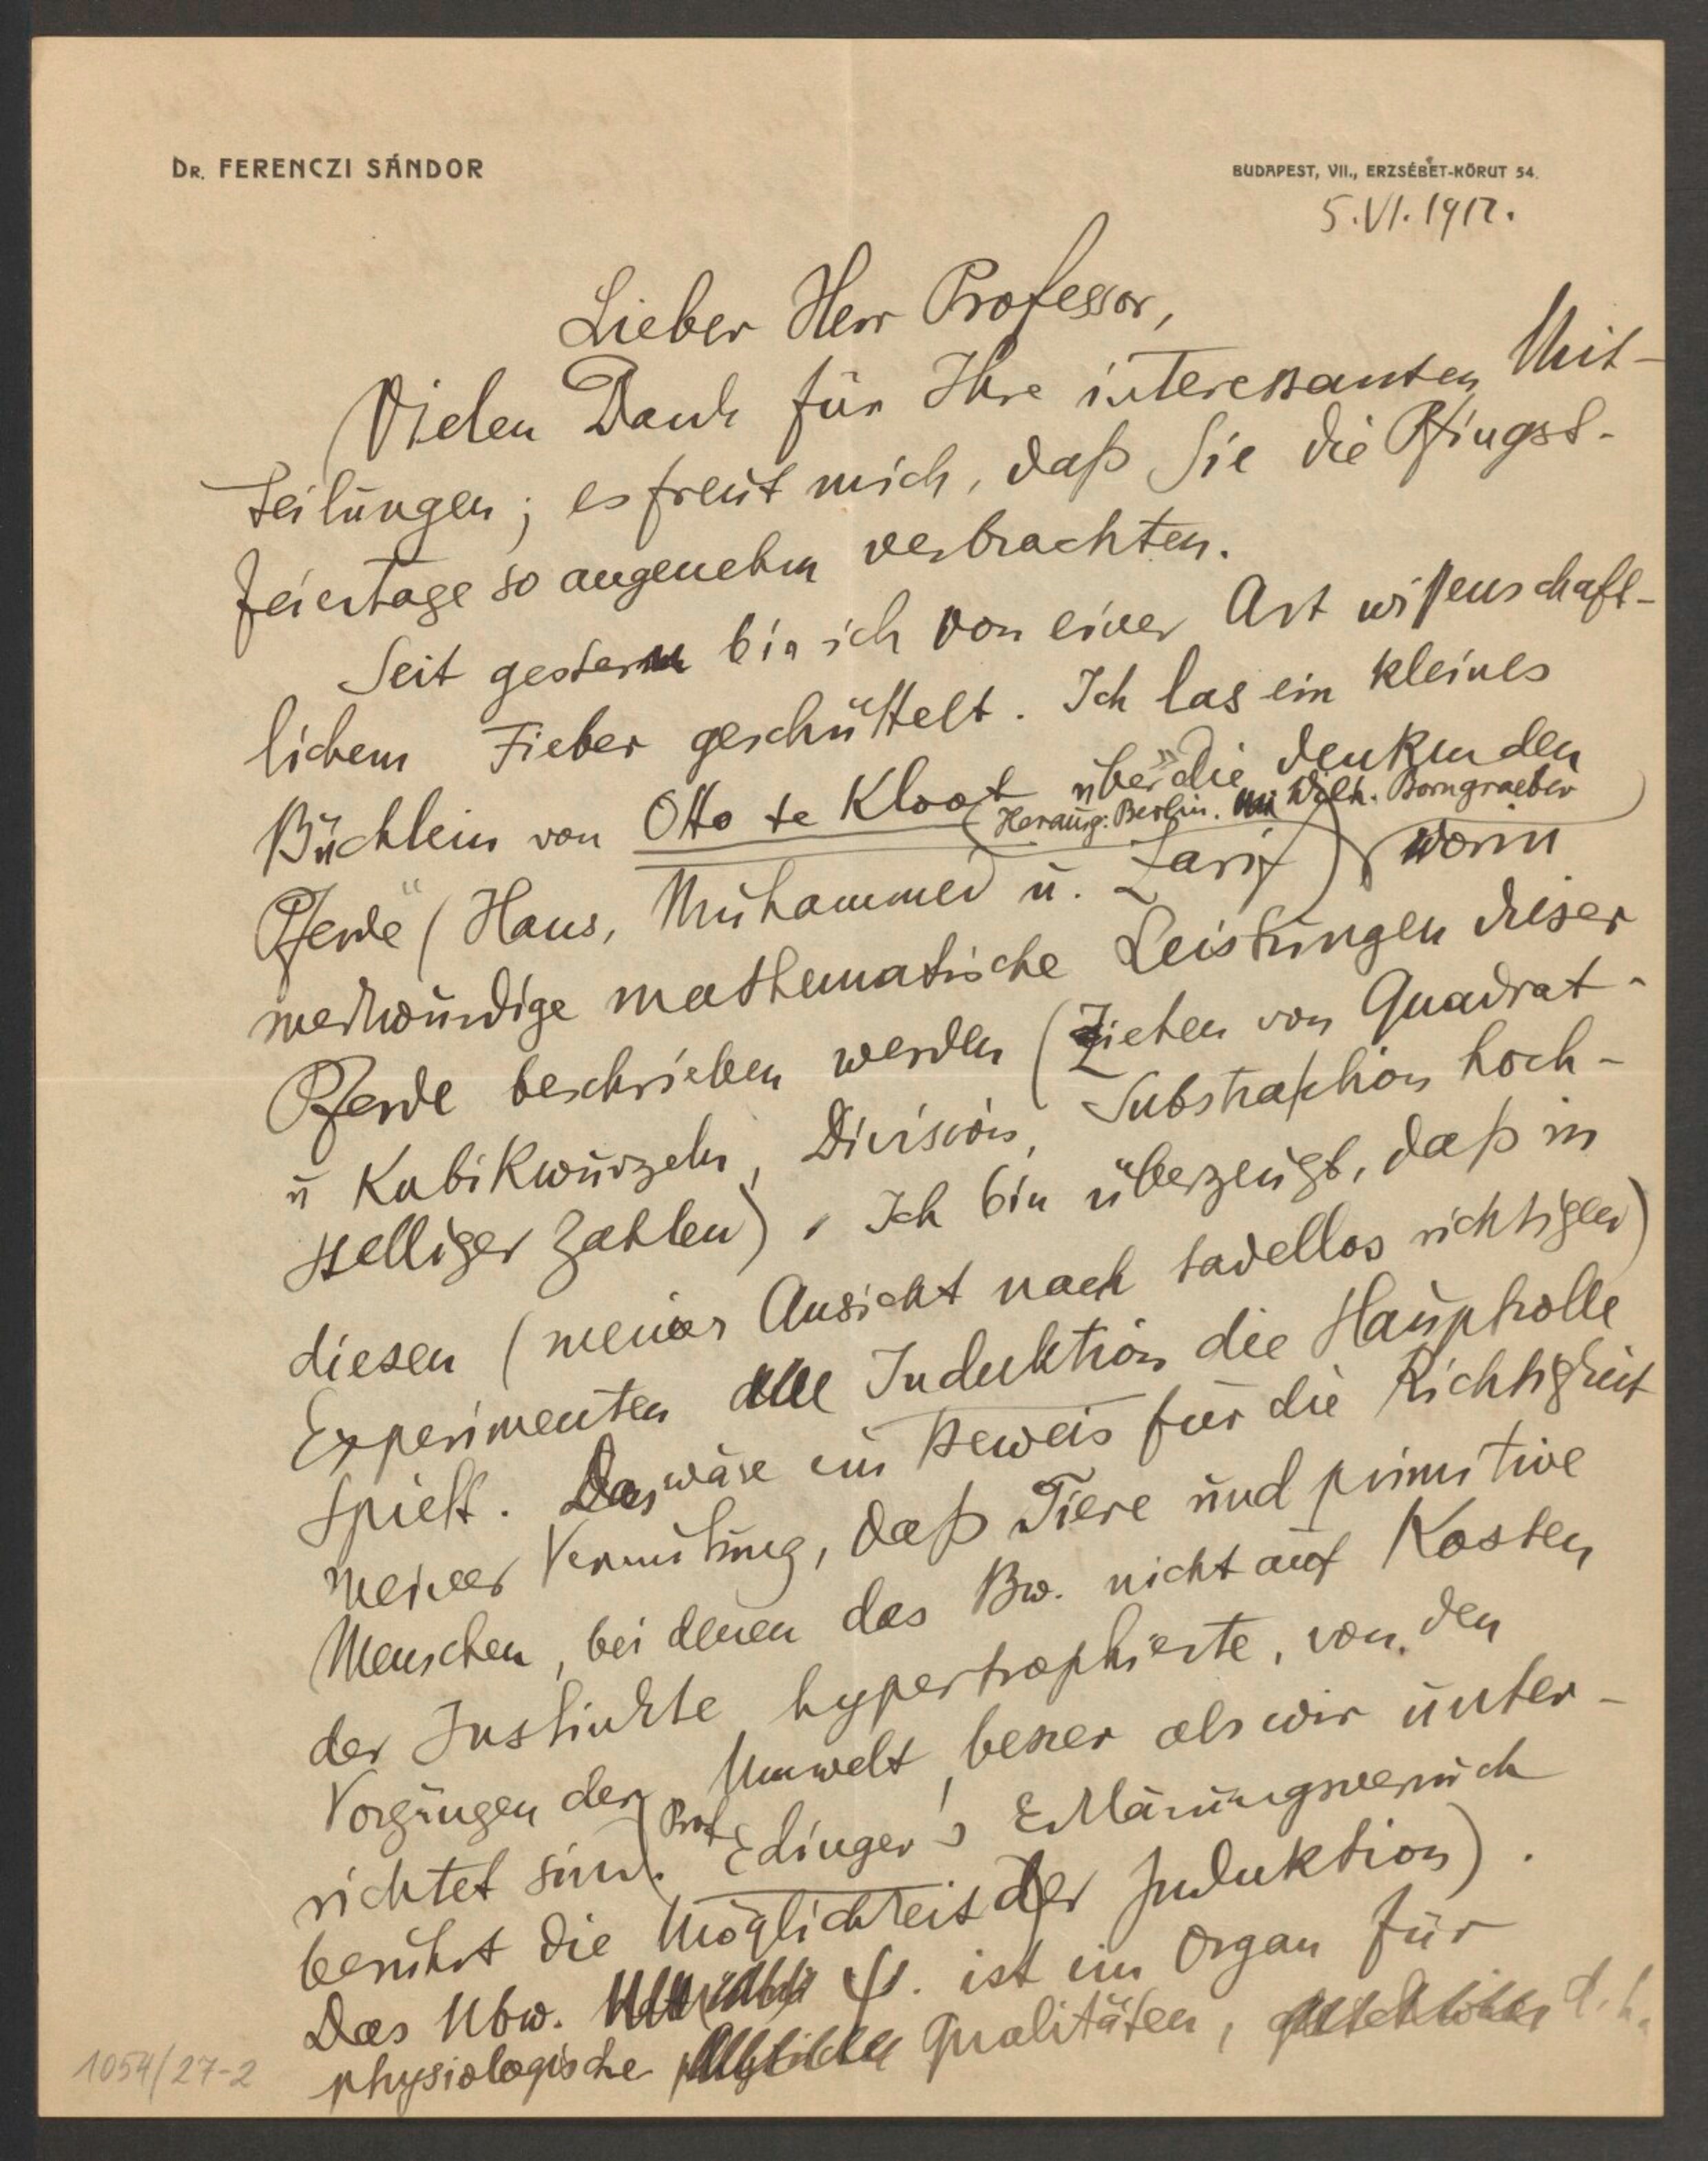 DR. FERENCZI SÁNDOR
BUDAPEST, VII., ERZSÉBET-KÖRUT 54.
5.VI.1912.
Lieber Herr Professor,
Vielen Dank für Ihre interessanten Mit-
teilungen; es freut mich, daß Sie die Pfingst-
feiertage so angenehm verbrachten.
Seit gestern bin ich von einer Art wissenschaft-
lichem Fieber geschüttelt. Ich las ein kleines
Büchlein von Otto te Kloot über „die denkenden
(Herausg: Berlin. Wilh. Borngraeber)
Pferde“ (Hans, Muhammed u. Zarif) worin
merkwürdige mathematische Leistungen dieser
Pferde beschrieben werden (Ziehen von Quadrat-
u Kubikwurzeln, Division, Substraktion hoch-
stelliger Zahlen). Ich bin überzeugt, daß in
diesen (meiner Ansicht nach tadellos richtigen)
Experimenten die Induktion die Hauptrolle
spielt. Das wäre ein Beweis für die Richtigkeit
meiner Vermutung, daß Tiere und primitive
Menschen, bei denen das Bw. nicht auf Kosten
der Instinkte hypertrophierte, von den
Vorgängen der Umwelt besser als wir unter-
richtet sind. (Prof. Edinger's Erklärungsversuch
berührt die Möglichkeit der Induktion).
Das Ubw. ist ein Organ für
physiologische Qualitäten, d.h.
1054/27-2